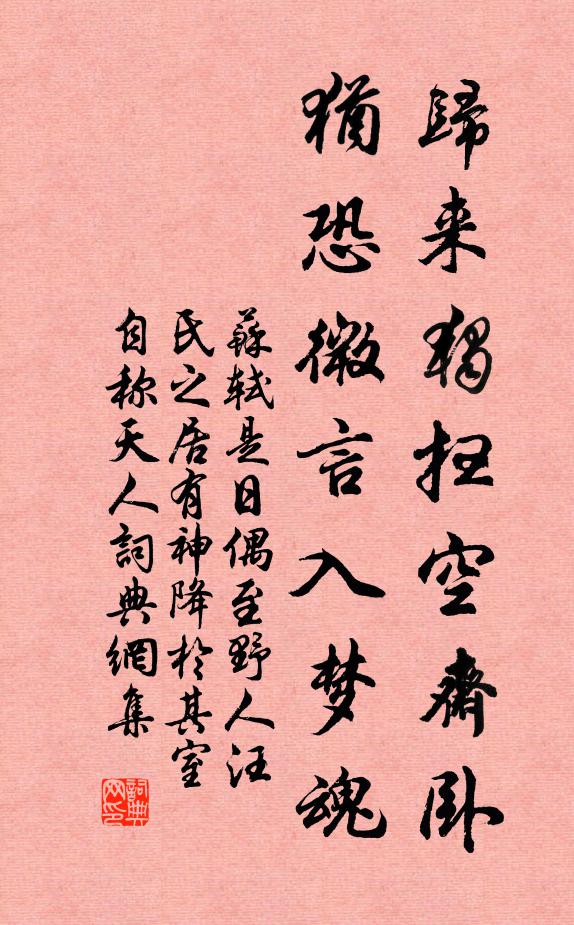 歸来独扫空齋卧
猶恐微言入梦魂
蘇轼是日偶至野人汪
氏之居有神降於其室
自称天人詞典網集
詞典网印